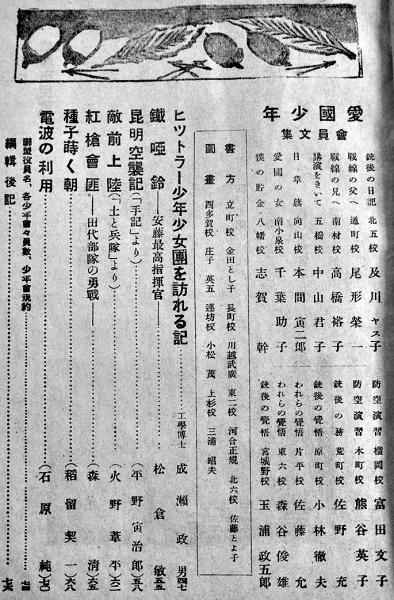 愛國少年
會員文集
銃後の日記 北五校 及川ヤス子
戰線の父へ 通町校 尾形榮一
戰線の兄へ 南材校 高橋裕子
講演をきいて 五橋校 中山君子
日章旗 向山校 本間寅二郎
愛國の女 南小泉校 千葉助子
僕の貯金 八幡校 志賀幹
防空演習 榴岡校 富田文子
防空演習 木町校 熊谷英子
銃後の務 荒町校 佐野充
銃後の覺悟 原町校 小林徹夫
われらの覺悟 片平校 佐藤允
われらの覺悟 東六校 森谷俊雄
銃後の覺悟 宮城野校 玉浦政五郎
書方 立町校 金田とし子 長町校 川越武廣 東二校 河合正規 北六校 佐藤とよ子
圖畫 西多賀校 庄子英五 連坊校 小松茂 上杉校 三浦昭夫
ヒットラー少年少女團を訪れる記……工學博士 成瀬政男(四七)
鐵啞鈴――安藤最高指揮官――……松倉敏(五五)
昆明空襲記(「手記」より)……(平野寅治郎)(五八)
敵前上陸(「土と兵隊」より)……(火野葦平)(六二)
紅槍會匪――田代部隊の勇戰――……(森清)(六五)
種子蒔く朝……(稻留契一)(六八)
電波の利用……(石原純)
聯盟役員名、各少年會々員數、少年會規約……
編輯後記……